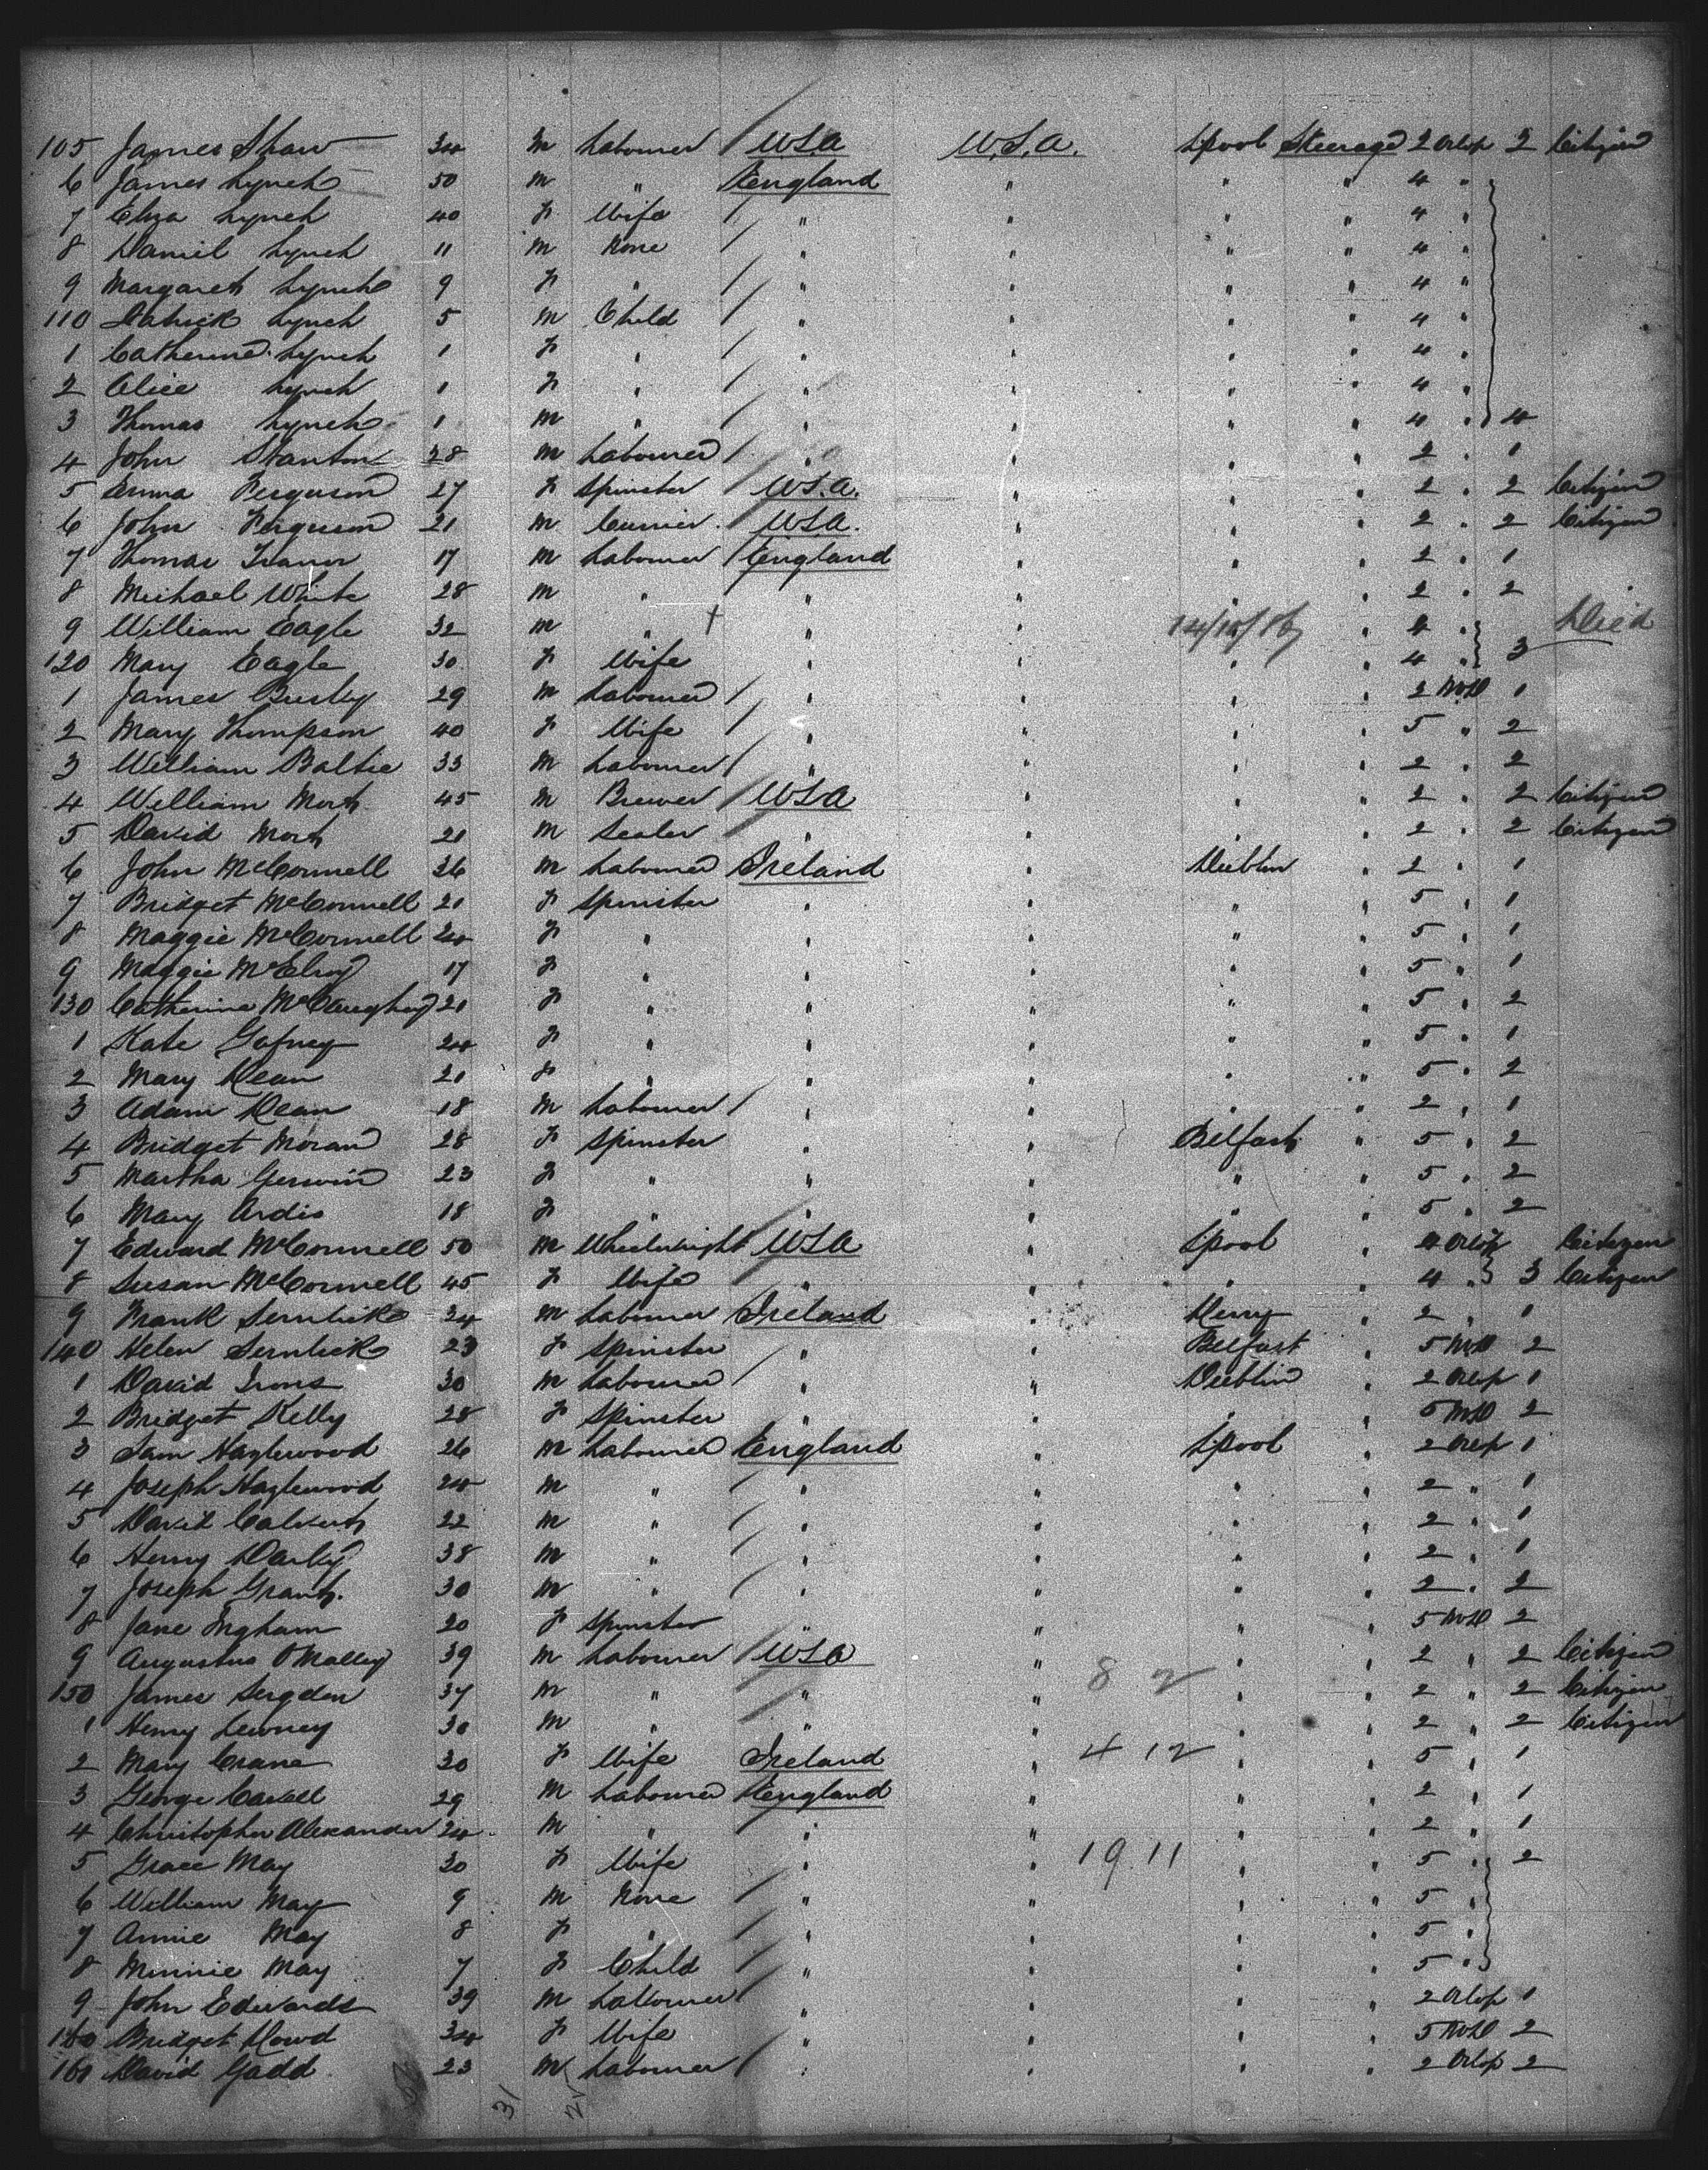 105 James Shaw 34 m Labourer U.S.A U.S.A. Lpool Steerage 2 Orlop 2 Citizen
6 James Lynch 50 m " England " " " 4 "
7 Eliza Lynch 40 f Wife " " " " 4 "
8 Daniel Lynch 11 m None " " " " 4 "
9 Margaret Lynch 9 f " " " " " 4 "
110 Patrick Lynch 5 m Child " " " " 4 "
1 Catherine Lynch 1 f " " " " " 4 "
2 Alice Lynch 1 f " " " " " 4 "
3 Thomas Lynch 1 m " " " " " 4 " 4
4 John Stanton 28 m Labourer " " " " 2 " 1
5 Emma Ferguson 27 f Spinster U.S.A. " " " 2 " 2 Citizen
6 John Ferguson 21 m Currier U.S.A. " " " 2 " 2 Citizen
7 Thomas 17 m Labourer England " " " 2 " 1
8 Michael White 28 m " " " " " 2 " 2
9 William Eagle 32 m " + " " " 4 " Died
120 Mary Eagle 30 f Wife " " " " 4 " 3
1 James Busby 29 m Labourer " " " " 2 1
2 Mary Thompson 40 f Wife " " " " 5 " 2
3 William Baltie 33 m Labourer " " " " 2 " 2
4 William 45 m Brewer U.S.A " " " 2 " 2 Citizen
5 David 21 m " " " " 2 " 2 Citizen
6 John McConnell 26 m Labourer Ireland " Dublin " 2 " 1
7 Bridget McConnell 21 f Spinster " " " " 5 " 1
8 Maggie McConnell 24 f " " " " " 5 " 1
9 Maggie McElroy 17 f " " " " " 5 " 1
130 Catherine McCaughey 21 f " " " " " 5 " 2
1 Kate Gafney 24 f " " " " " 5 " 1
2 Mary Kean 21 f " " " " " 5 " 2
3 Adam Kean 18 m Labourer " " " " 2 " 1
4 Bridget Moran 28 f Spinster " " Belfast " 5 " 2
5 Martha 23 f " " " " " 5 " 2
6 Mary Ardis 18 f " " " " " 5 " 2
7 Edward McConnell 50 m Wheelwright U.S.A " Lpool " 4 Orlop Citizen
8 Susan McConnell 45 f Wife " " " " 4 " 3 Citizen
9 Frank 24 m Labourer Ireland " " 2 " 1
140 Helen 23 f Spinster " " Belfast " 5 2
1 David Irons 30 m Labourer " " Dublin " 2 Orlop 1
2 Bridget Kelly 28 f Spinster " " " " 5 2
3 Sam Hazlewood 26 m Labourer England " Lpool " 2 Orlop 1
4 Joseph Hazlewood 24 m " " " " " 2 " 1
5 David Calvert 22 m " " " " " 2 " 1
6 Henry Darby 38 m " " " " " 2 " 1
7 Joseph Grant 30 m " " " " " 2 " 2
8 Jane Ingham 20 f Spinster " " " " 5 2
9 Augustus O'Malley 39 m Labourer U.S.A " " " 2 " 2 Citizen
150 James 37 m " " " 8 2 " " 2 " 2 Citizen
1 Henry Lewney 30 m " " " " " 2 " 2 Citizen
2 Mary Crane 30 f Wife Ireland " 4 12 " " 5 " 1
3 George 29 m Labourer England " " " 2 " 1
4 Christopher Alexander 24 m " " " " " 2 " 1
5 Grace May 30 f Wife " " 19 11 " " 5 " 2
6 William May 9 m None " " " " 5 "
7 Annie May 8 f " " " " " 5 "
8 Minnie May 7 f Child " " " " 5 "
9 John Edwards 39 m Labourer " " " " 2 Orlop 1
160 Bridget Dowd 34 f Wife " " " " 5 2
161 David Gadd 23 m Labourer " " " " 2 Orlop 2
31